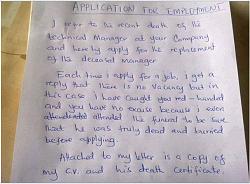 APPLICATION FOR EMPLOYMENT
I refer to the recent death of the
Technical Manager at your Company
and hereby apply for the replacement
of the deceased manager
Each time i apply for a job, i get a
reply that there is no vacancy but in
this case i have caught you red-handed
and you have no excuse because i even
attended the funeral to be sure
that he was truly dead and buried
before applying.
Attached to my letter is a copy of
my C.V. and his death certificate.